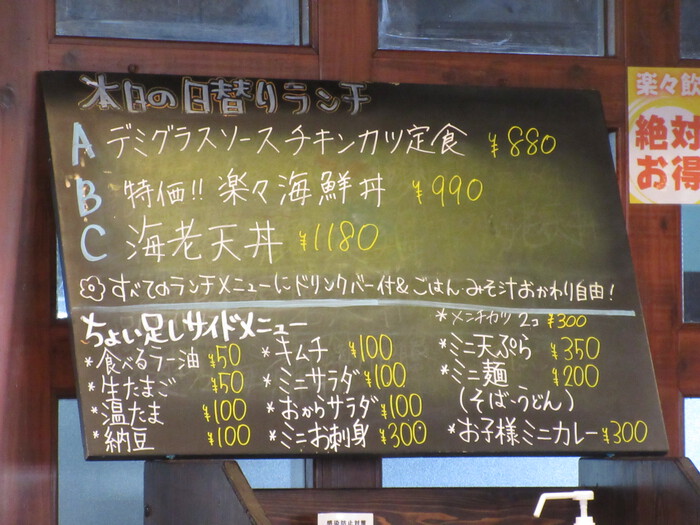 本日の日替りランチ
A デミグラスソースチキンカツ定食 ¥880
B 特価!! 楽々海鮮丼 ¥990
C 海老天丼 ¥1180
すべてのランチメニューにドリンクバー付&ごはん・みそ汁おかわり自由!
ちょい足しサイドメニュー
*食べるラー油 ¥50
*生たまご ¥50
*温たま ¥100
*納豆 ¥100
*キムチ ¥100
*ミニサラダ ¥100
*おからサラダ ¥100
*ミニお刺身 ¥300
*メンチカツ 2コ ¥300
*ミニ天ぷら ¥350
*ミニ麺 ¥200
(そば・うどん)
*お子様ミニカレー ¥300
楽々飲
絶対
お得
感染防止対策